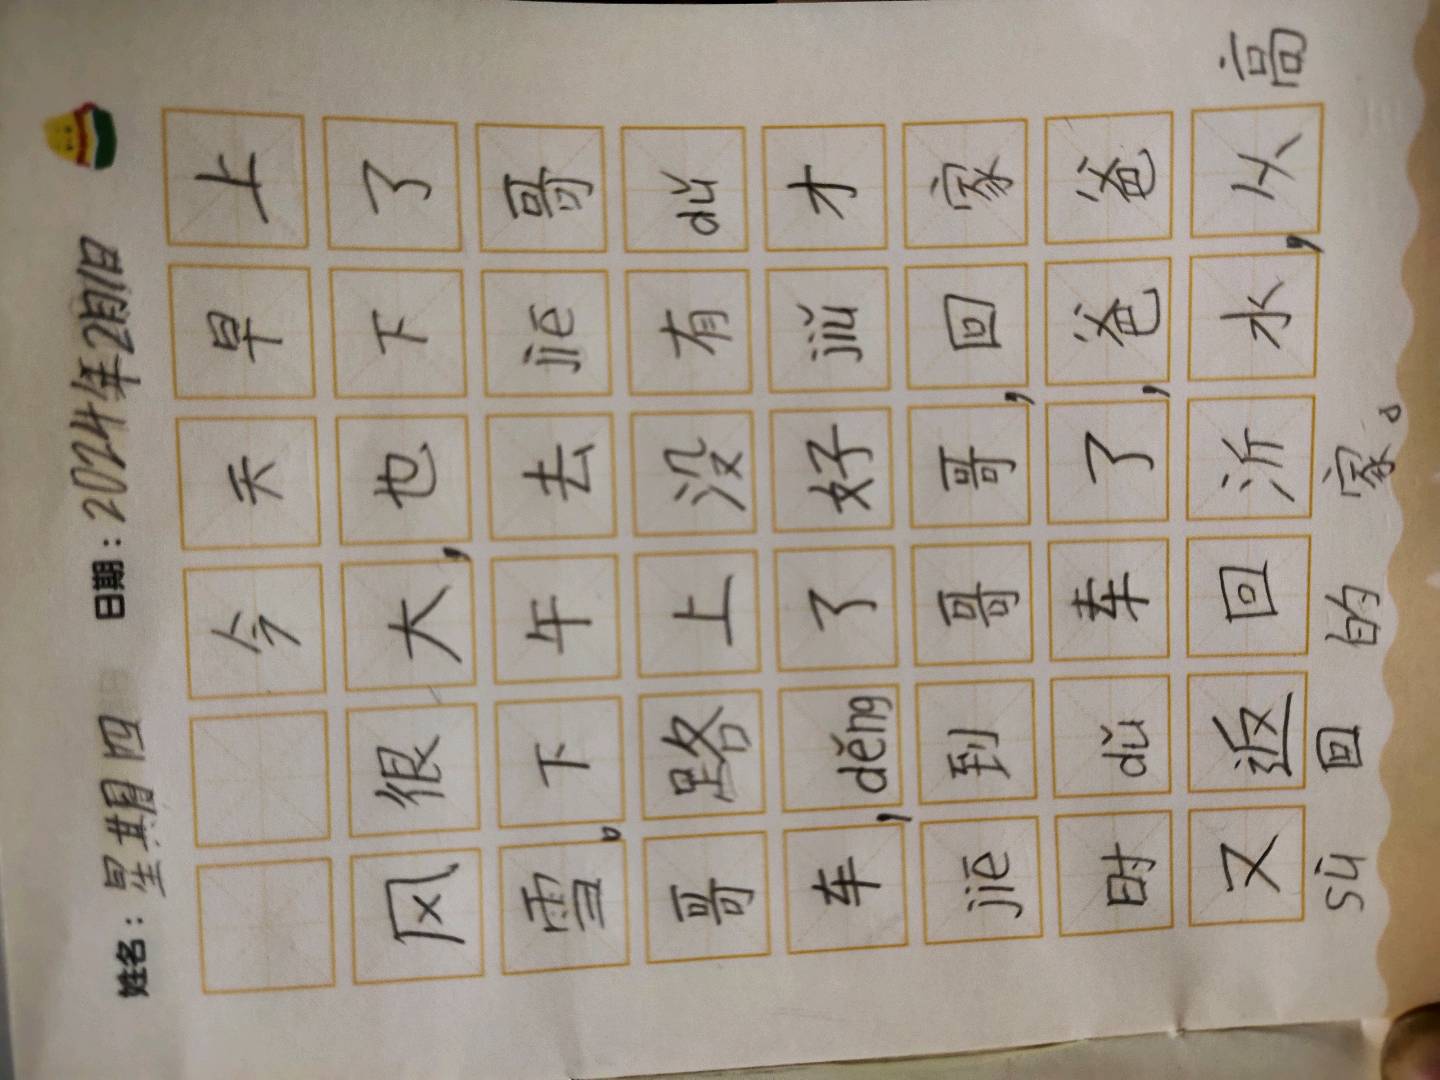 姓名：星期四 日期：2024年2月1日
今天早上
风很大，也下了
雪。下午去jiē哥
哥路上没有dǔ
车，děng了好jiǔ才
jiē到哥哥，回家
时dǔ车了，爸爸
又返回沂水，从高
sù回的家。